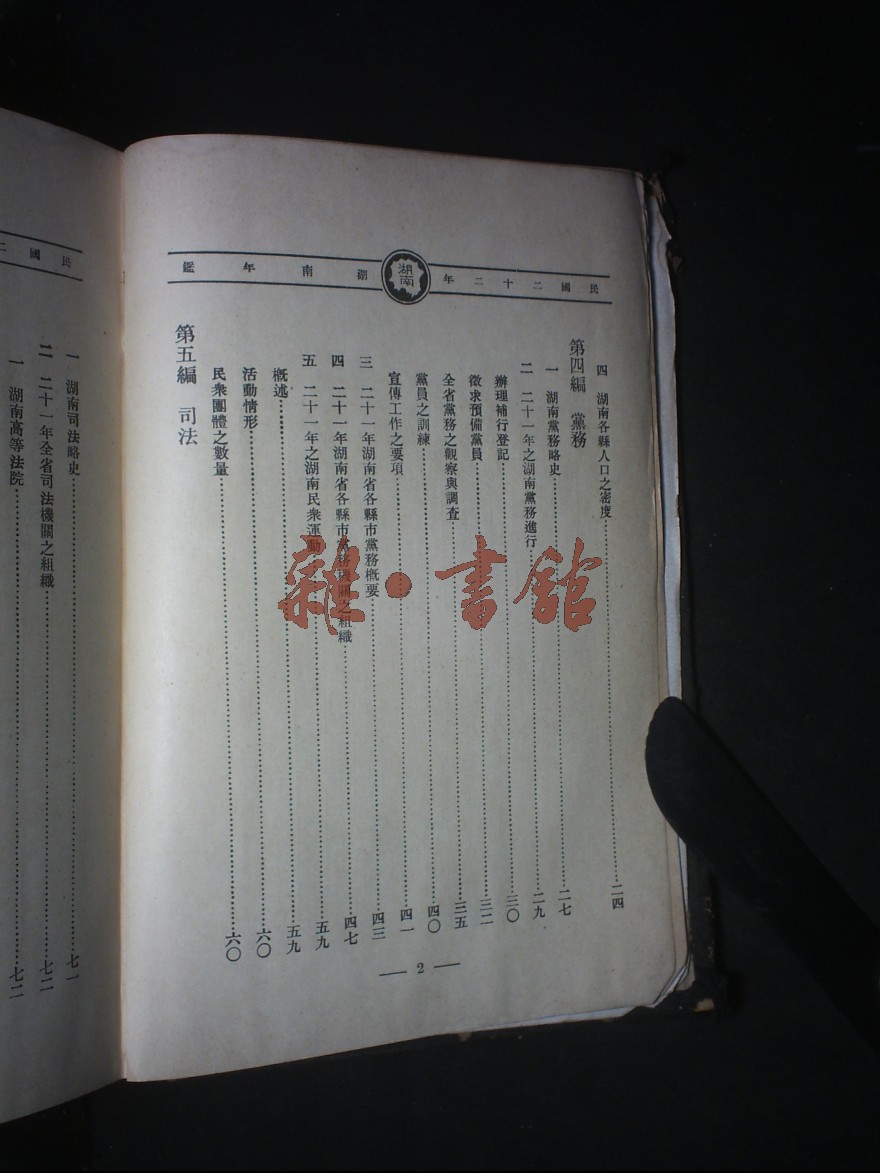 民國二十二年湖南年鑑
湖南
四 湖南各縣人口之密度……二四
第四編 黨務
一 湖南黨務略史……二七
二 二十一年之湖南黨務進行……二九
辦理補行登記……三〇
徵求預備黨員……三二
全省黨務之觀察與調查……三五
黨員之訓練……四〇
宣傳工作之要項……四一
三 二十一年湖南省各縣市黨務概要……四三
四 二十一年湖南省各縣市黨務機關之組織……四七
五 二十一年之湖南民衆運動……五九
概述……五九
活動情形……六〇
民衆團體之數量……六〇
第五編 司法
— 2 —
民國二
一 湖南司法略史……七一
二 二十一年全省司法機關之組織……七二
一 湖南高等法院……七二
雜·書館